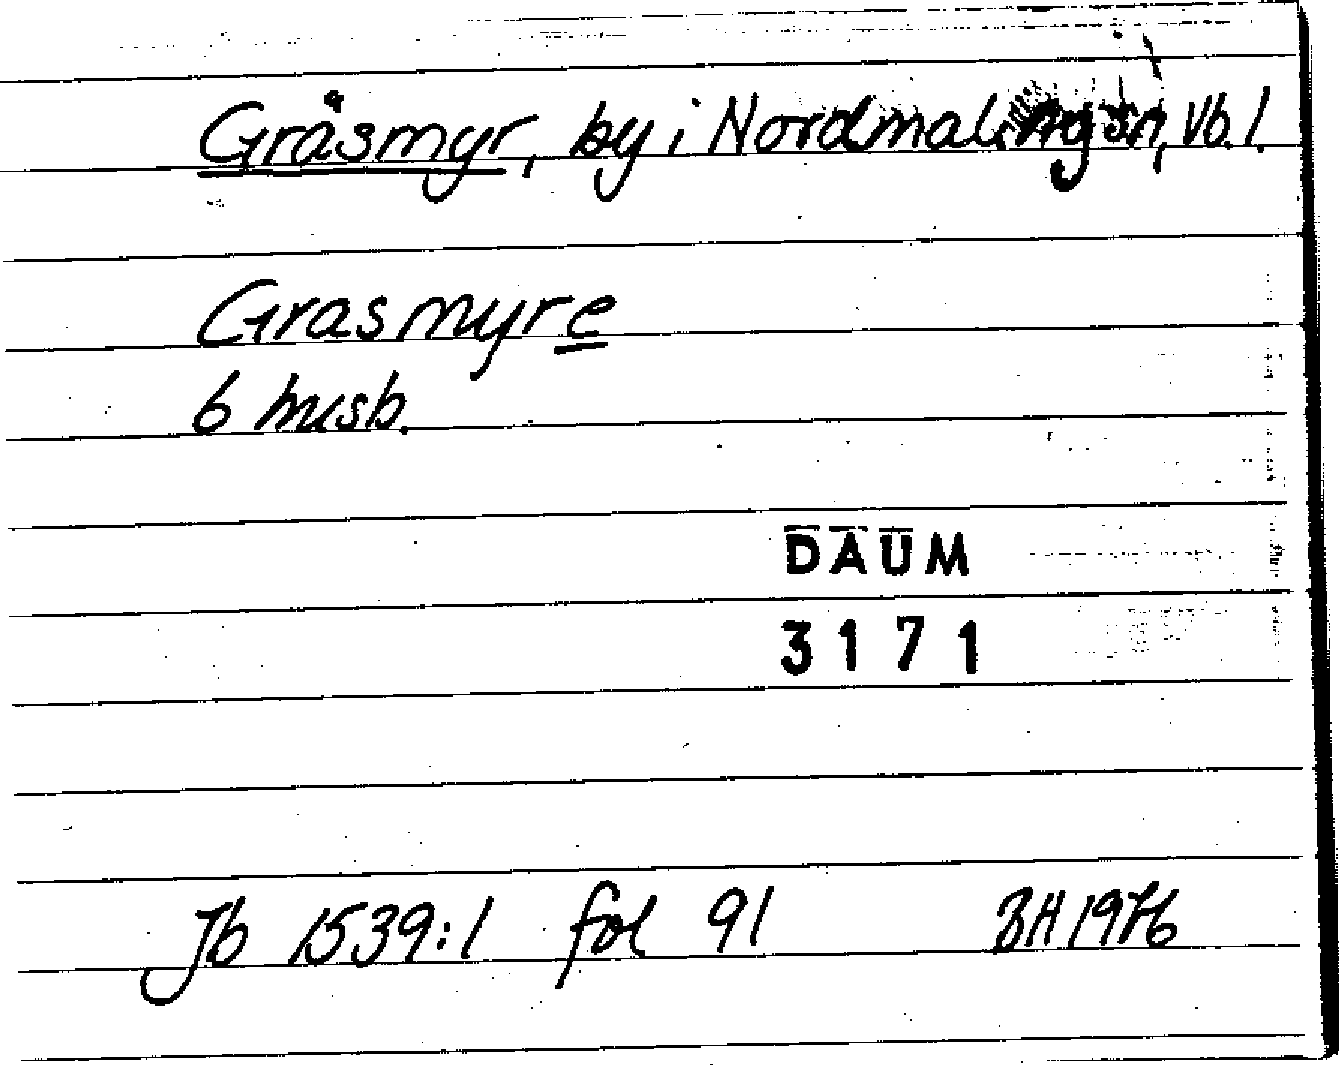 Gräsmyr, by i Nordmalings sn, Vb. l.
Grasmyre
6 husb.
DAUM
3171
Jb 1539:1 fol 91 BH 1976